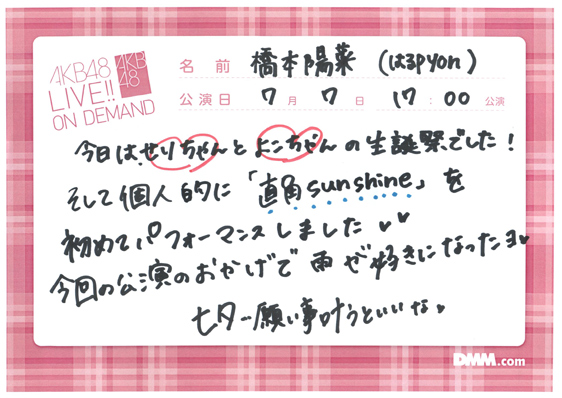 AKB48
LIVE!!
ON DEMAND
AKB
48
名前 橋本陽菜 (はるpyon)
公演日 7月7日 17:00公演
今日は、せりちゃんとよこちゃんの生誕祭でした!
そして個人的に「直角sunshine」を
初めてパフォーマンスしました♥♥
今回の公演のおかげで雨が好きになったヨ♥
七夕…願い事叶うといいな。
DMM.com